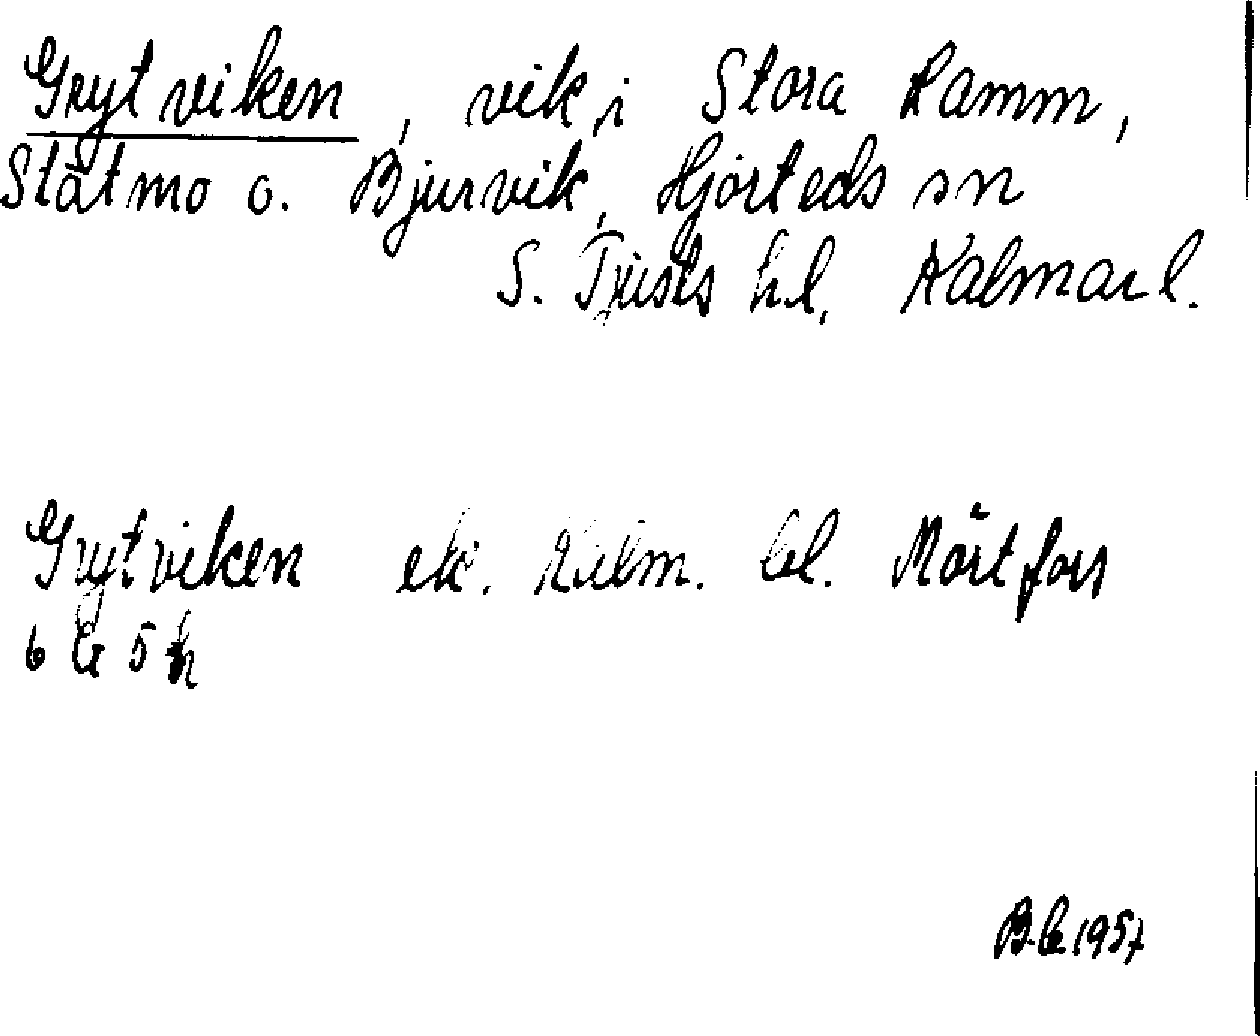 Grytviken, vik i Stora Ramm,
Ståtmo o. Bjurvik, Hjorteds sn
S. Tjusts hd, Kalmar l.
Grytviken ek. Kalm. bl. Mörtfors
6 G 5 h
1957